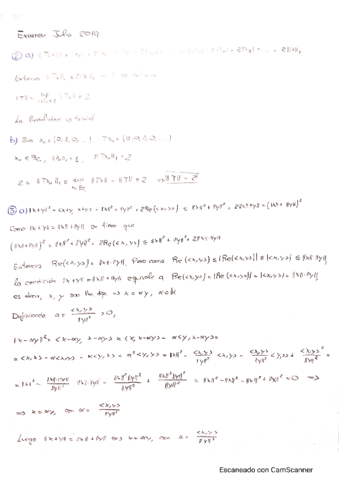 Examen Julio 2019
② a)
Entonces
‖T‖ = sup ‖Tx‖ = 2
La linealidad es trivial
b) Sea x₀ = (0,1,0,...) Tx₀ = (0,2,0,...)
x₀ ∈ , ‖x₀‖ = 1, ‖Tx₀‖ = 2
2 = ‖Tx₀‖ ≤ sup ‖Tx‖ = ‖T‖ = 2 ⇒ ‖T‖ = 2
③ a) ‖x+y‖² = <x+y, x+y> = ‖x‖² + ‖y‖² + 2Re(<x,y>) ≤ ‖x‖² + ‖y‖² + 2‖x‖·‖y‖ = (‖x‖+‖y‖)²
Como ‖x+y‖ = ‖x‖+‖y‖ se tiene que
(‖x‖+‖y‖)² = ‖x‖² + ‖y‖² + 2Re(<x,y>) ≤ ‖x‖² + ‖y‖² + 2‖x‖·‖y‖
Entonces Re(<x,y>) = ‖x‖·‖y‖. Pero como Re(<x,y>) ≤ |Re(<x,y>)| ≤ |<x,y>| ≤ ‖x‖·‖y‖,
la condición ‖x+y‖ = ‖x‖+‖y‖ equivale a Re(<x,y>) = |Re(<x,y>)| = |<x,y>| = ‖x‖·‖y‖,
es decir, x, y son lin. dep. ⇒ x = αy, α∈
Definiendo α = <x,y>/‖y‖² > 0,
‖x-αy‖² = <x-αy, x-αy> = <x, x-αy> - α<y, x-αy> =
= <x,x> - α<x,y> - α<y,x> + α²<y,y> = ‖x‖² - <x,y>/‖y‖² <x,y> - <x,y>/‖y‖² <y,x> + <x,y>²/‖y‖² =
= ‖x‖² - ‖x‖·‖y‖/‖y‖² ‖x‖·‖y‖ - ‖x‖²‖y‖²/‖y‖² + ‖x‖²‖y‖²/‖y‖² = ‖x‖² - ‖x‖² - ‖x‖² + ‖x‖² = 0 ⇒
⇒ x = αy, con α = <x,y>/‖y‖²
Luego ‖x+y‖ = ‖x‖+‖y‖ ⇔ x = αy, con α = <x,y>/‖y‖²
Escaneado con CamScanner